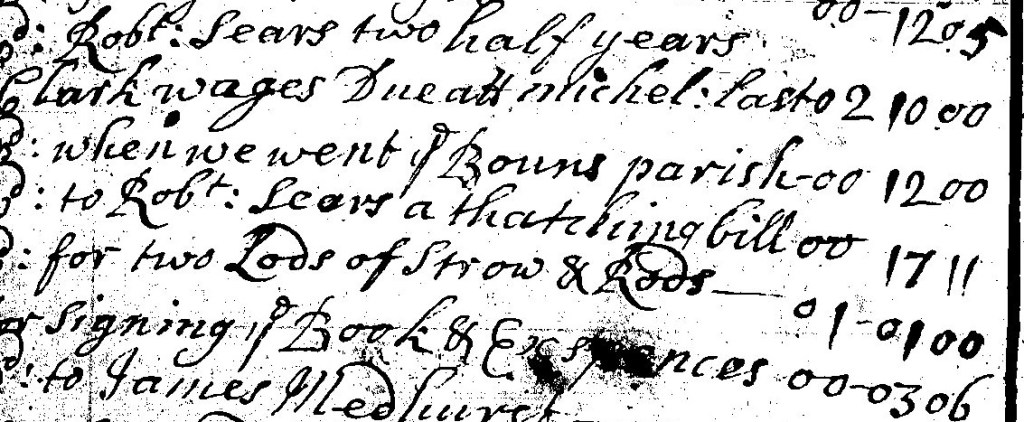 d: Robt: Sears two half years 00-12 05
Clark wages Due att michel: last 02 10 00
d: when we went ye Bouns parish-00 12 00
d: to Robt: Sears a thatching bill 00 17 11
d: for two Lods of Strow & Rods — 01-01 00
for signing ye Book & Expences 00-03 06
d: to James Medhurst